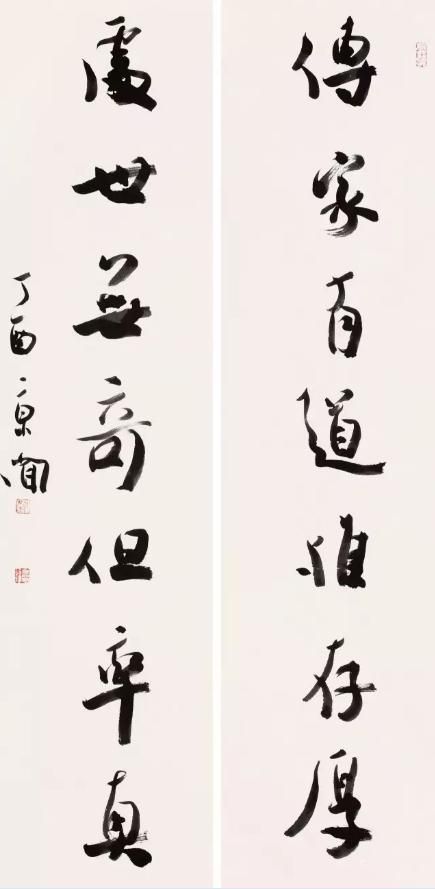 傳家有道惟存厚
處世無奇但率真
丁酉 京聞